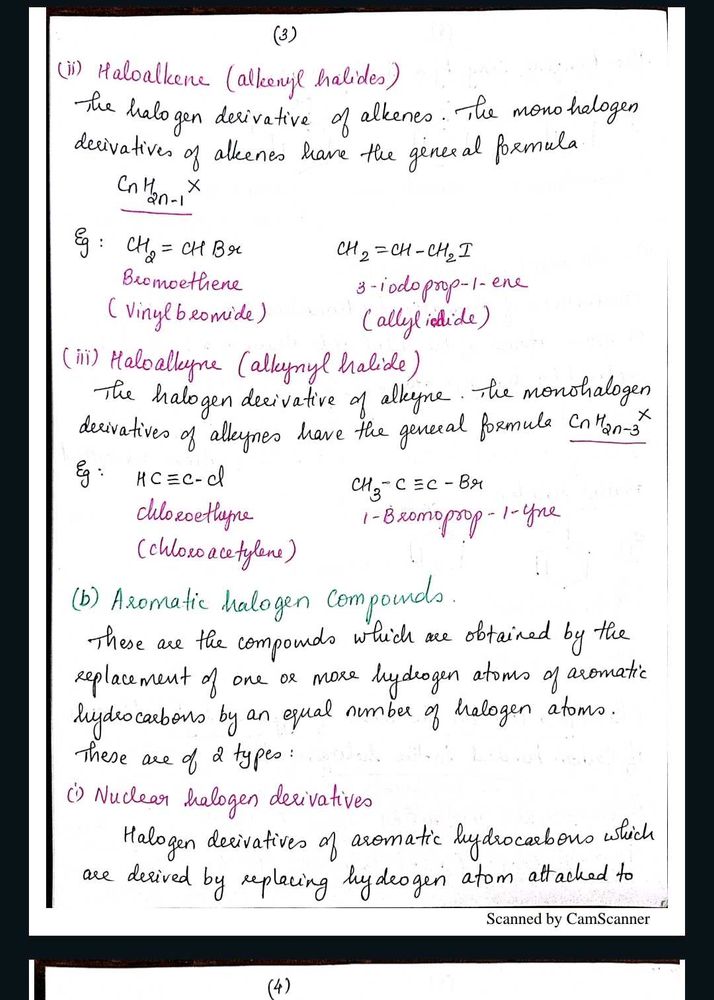 (3)
(ii) Haloalkene (alkenyl halides)
The halogen derivative of alkenes. The mono halogen
derivatives of alkenes have the general formula
CnH2n-1X
Eg : CH2 = CH Br CH2 = CH - CH2I
Bromoethene 3-iodoprop-1-ene
(Vinyl bromide) (allyl iodide)
(iii) Haloalkyne (alkynyl halide)
The halogen derivative of alkyne. The monohalogen
derivatives of alkynes have the general formula CnH2n-3X
Eg : HC≡C-Cl CH3-C≡C-Br
chloroethyne 1-Bromoprop-1-yne
(chloroacetylene)
(b) Aromatic halogen Compounds.
These are the compounds which are obtained by the
replacement of one or more hydrogen atoms of aromatic
hydrocarbons by an equal number of halogen atoms.
These are of 2 types :
(i) Nuclear halogen derivatives
Halogen derivatives of aromatic hydrocarbons which
are derived by replacing hydrogen atom attached to
Scanned by CamScanner
(4)